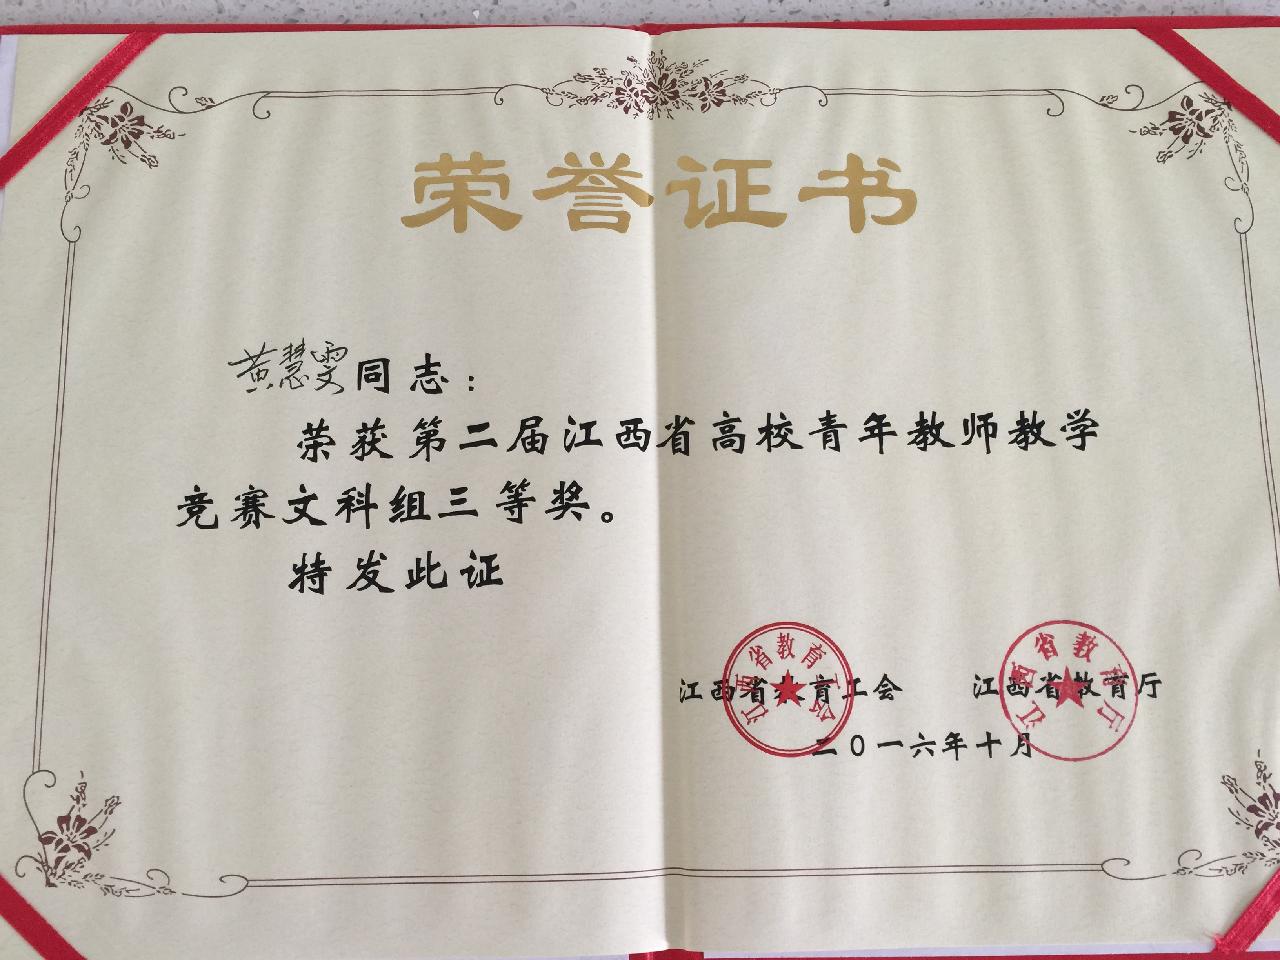 荣誉证书
黄慧雯同志：
荣获第二届江西省高校青年教师教学
竞赛文科组三等奖。
特发此证
江西省教育工会 江西省教育厅
二〇一六年十月
江西省教育工会
江西省教育厅